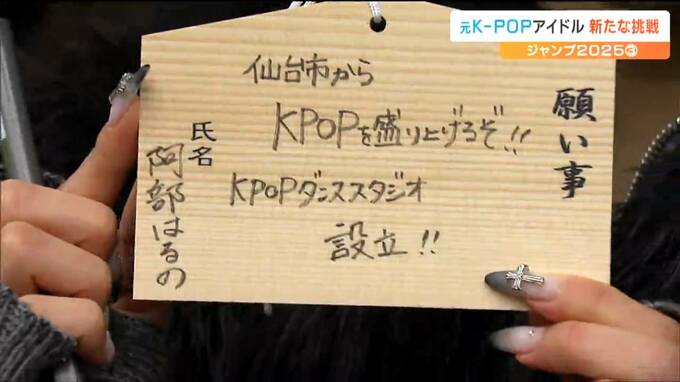 元K-POPアイドル 新たな挑戦
ジャンプ2025③
願い事
仙台市から
KPOPを盛り上げるぞ!!
KPOPダンススタジオ
設立!!
氏名
阿部はるの